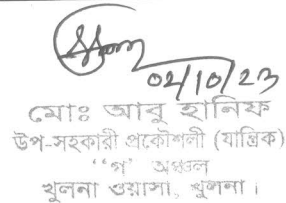 02/10/23
মোঃ আবু হানিফ
উপ-সহকারী প্রকৌশলী (যান্ত্রিক)
“গ” অঞ্চল
খুলনা ওয়াসা, খুলনা।